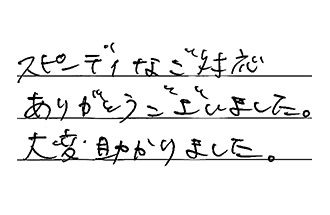 スピーディなご対応
ありがとうございました。
大変助かりました。